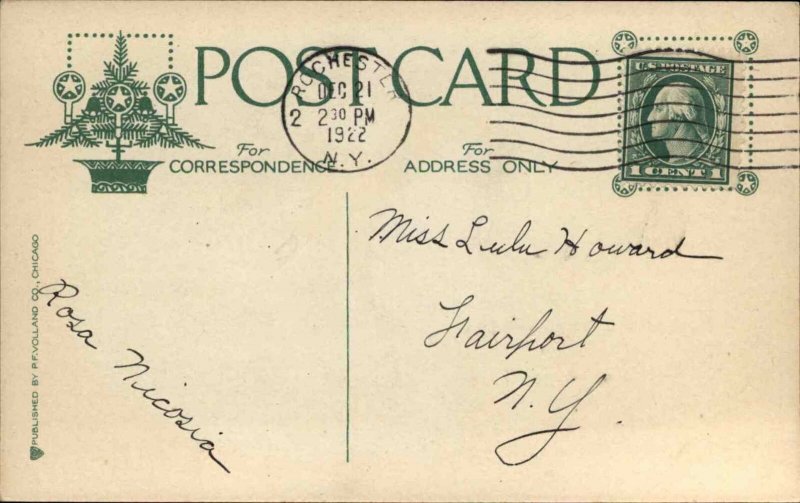 POST CARD
ROCHESTER
DEC 21
2 2 30 PM
1922
N.Y.
U.S. POSTAGE
1 CENT 1
For
CORRESPONDENCE
For
ADDRESS ONLY
Miss Lulu Howard
Fairport
N.Y
Rosa Nicosia
PUBLISHED BY P.F. VOLLAND CO., CHICAGO